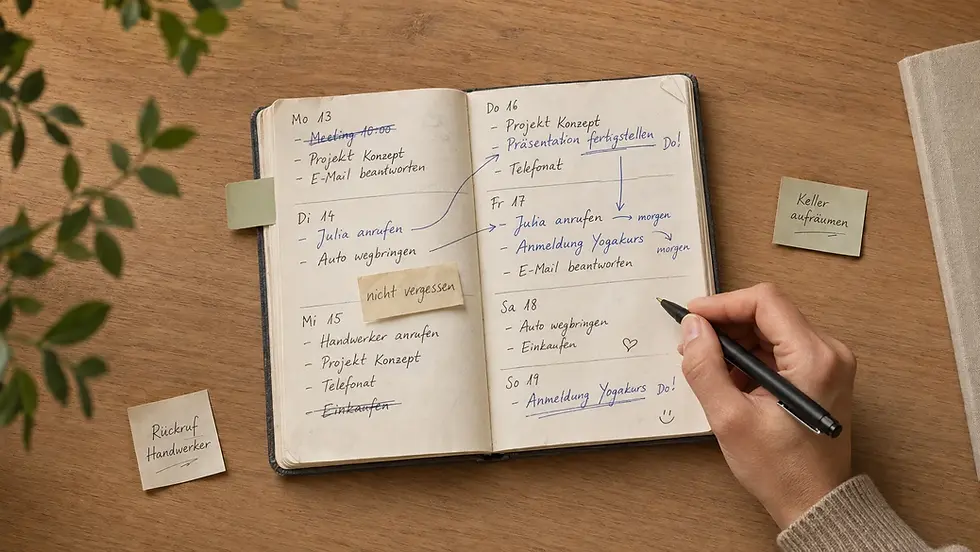 Mo 13
- Meeting 10:00
- Projekt Konzept
- E-Mail beantworten
Di 14
- Julia anrufen
- Auto wegbringen
nicht vergessen
Mi 15
- Handwerker anrufen
- Projekt Konzept
- Telefonat
- Einkaufen
Do 16
- Projekt Konzept
- Präsentation fertigstellen Do!
- Telefonat
Fr 17
- Julia anrufen → morgen
- Anmeldung Yogakurs
morgen
- E-Mail beantworten
Sa 18
- Auto wegbringen
- Einkaufen ♡
So 19
- Anmeldung Yogakurs Do!
Keller
aufräumen
Rückruf
Handwerker